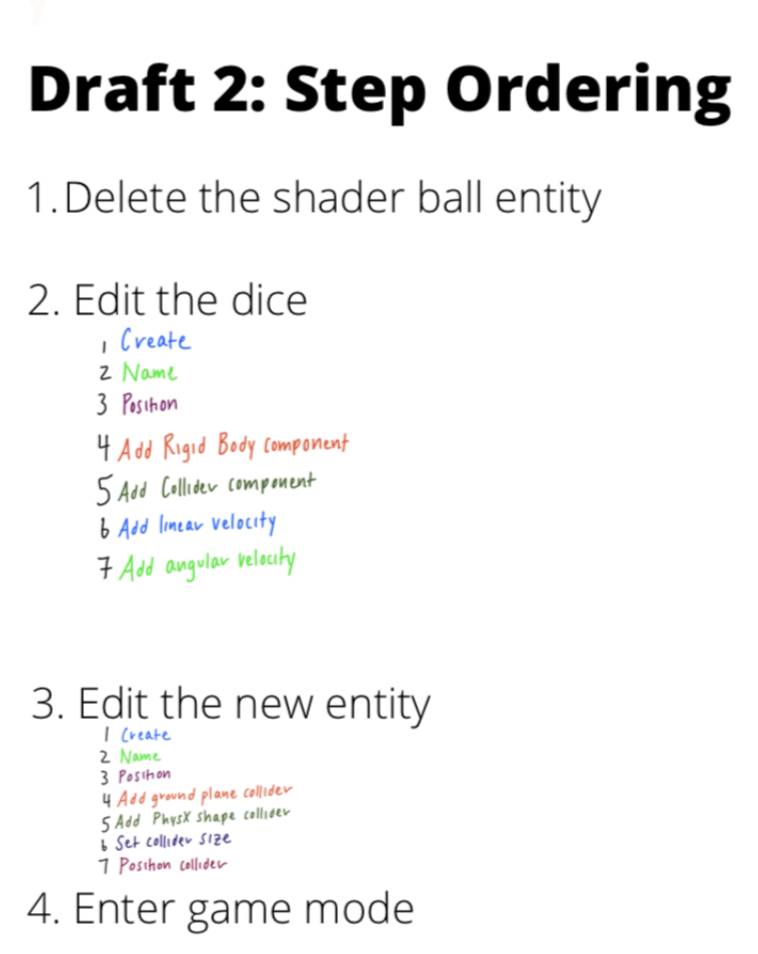 Draft 2: Step Ordering
1. Delete the shader ball entity
2. Edit the dice
1 Create
2 Name
3 Position
4 Add Rigid Body component
5 Add Collider component
6 Add linear velocity
7 Add angular velocity
3. Edit the new entity
1 Create
2 Name
3 Position
4 Add ground plane collider
5 Add PhysX shape collider
6 Set collider size
7 Position collider
4. Enter game mode